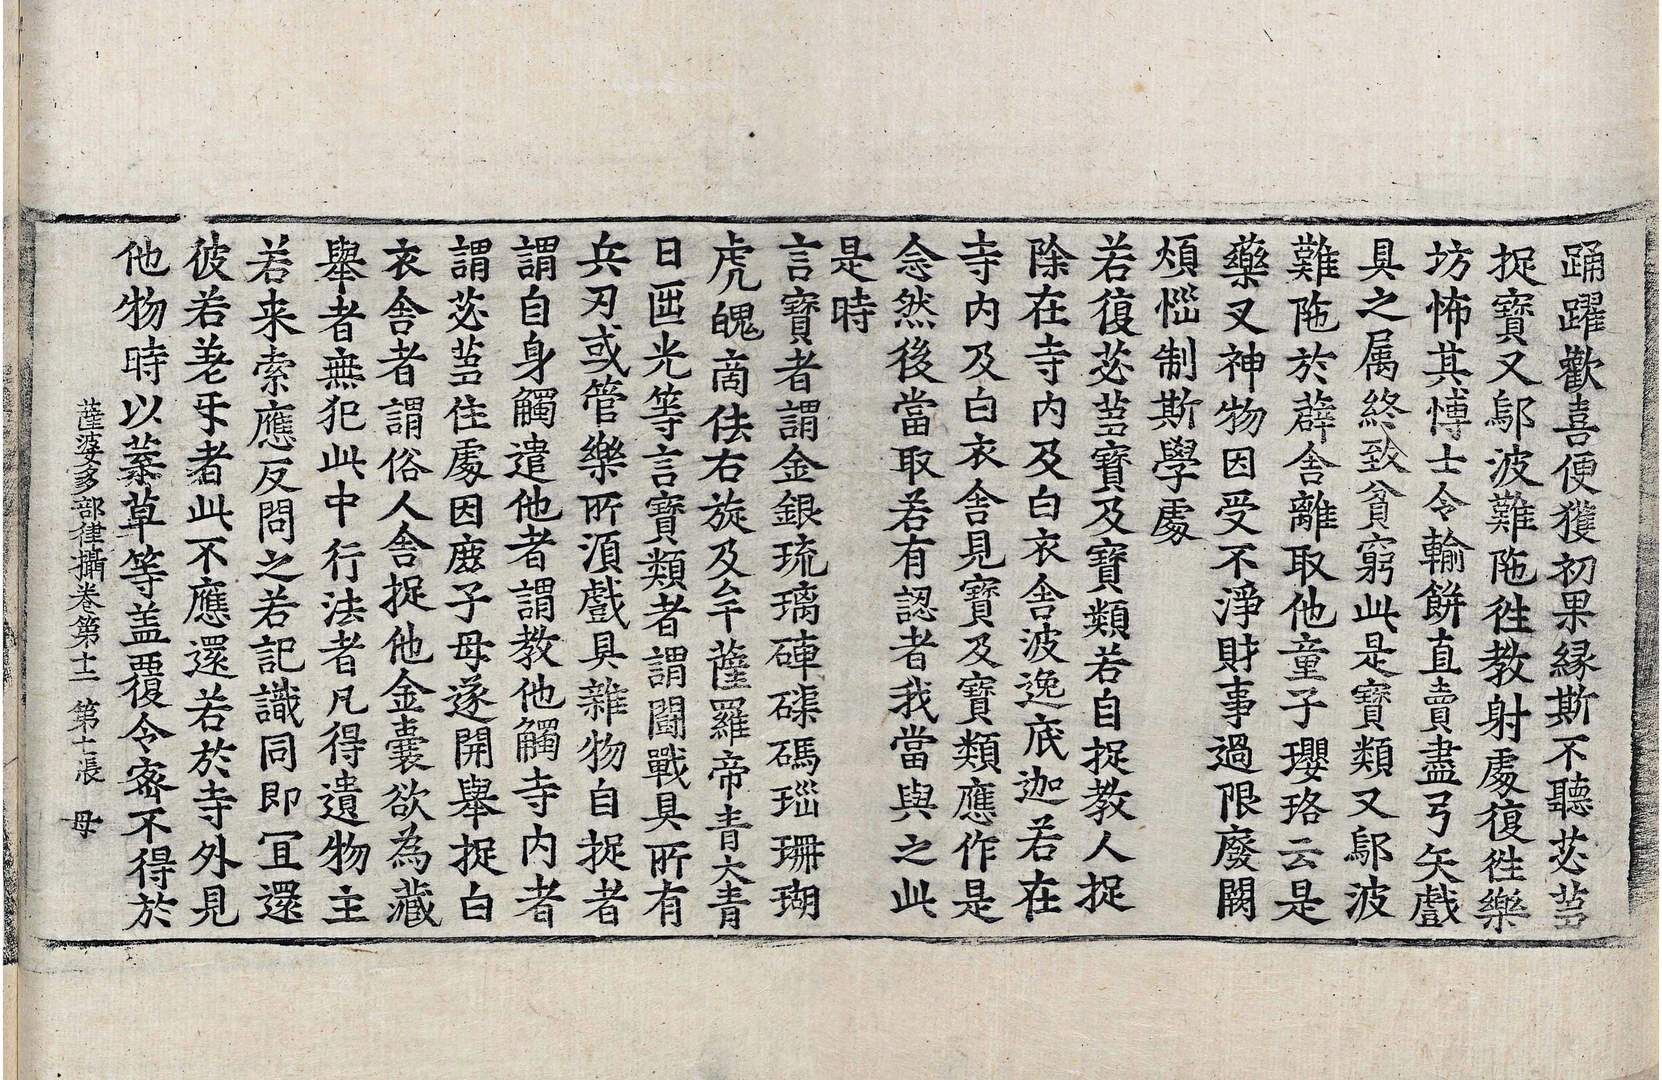 踊躍歡喜便獲初果緣斯不聽苾芻
捉寶又鄔波難陁徃教射處復徃樂
坊怖其博士令輸餅直賣盡弓矢戲
具之属終致貧窮此是寶類又鄔波
難陁於薜舍離取他童子瓔珞云是
藥叉神物因受不淨財事過限廢闕
煩惱制斯學處
若復苾芻寶及寶類若自捉教人捉
除在寺內及白衣舍波逸底迦若在
寺內及白衣舍見寶及寶類應作是
念然後當取若有認者我當與之此
是時
言寶者謂金銀琉璃硨磲碼瑙珊瑚
虎魄商佉右旋及牟薩羅帝青大青
日𠚒光等言寶類者謂鬪戰具所有
兵刃或管樂所湏戲具雜物自捉者
謂自身觸遣他者謂教他觸寺內者
謂苾芻住處因鹿子母遂開舉捉白
衣舍者謂俗人舍捉他金囊欲為藏
舉者無犯此中行法者凡得遺物主
若来索應反問之若記識同即冝還
彼若差牙者此不應還若於寺外見
他物時以葉草等盖覆令密不得於
薩婆多部律攝卷第十二 第十張 母